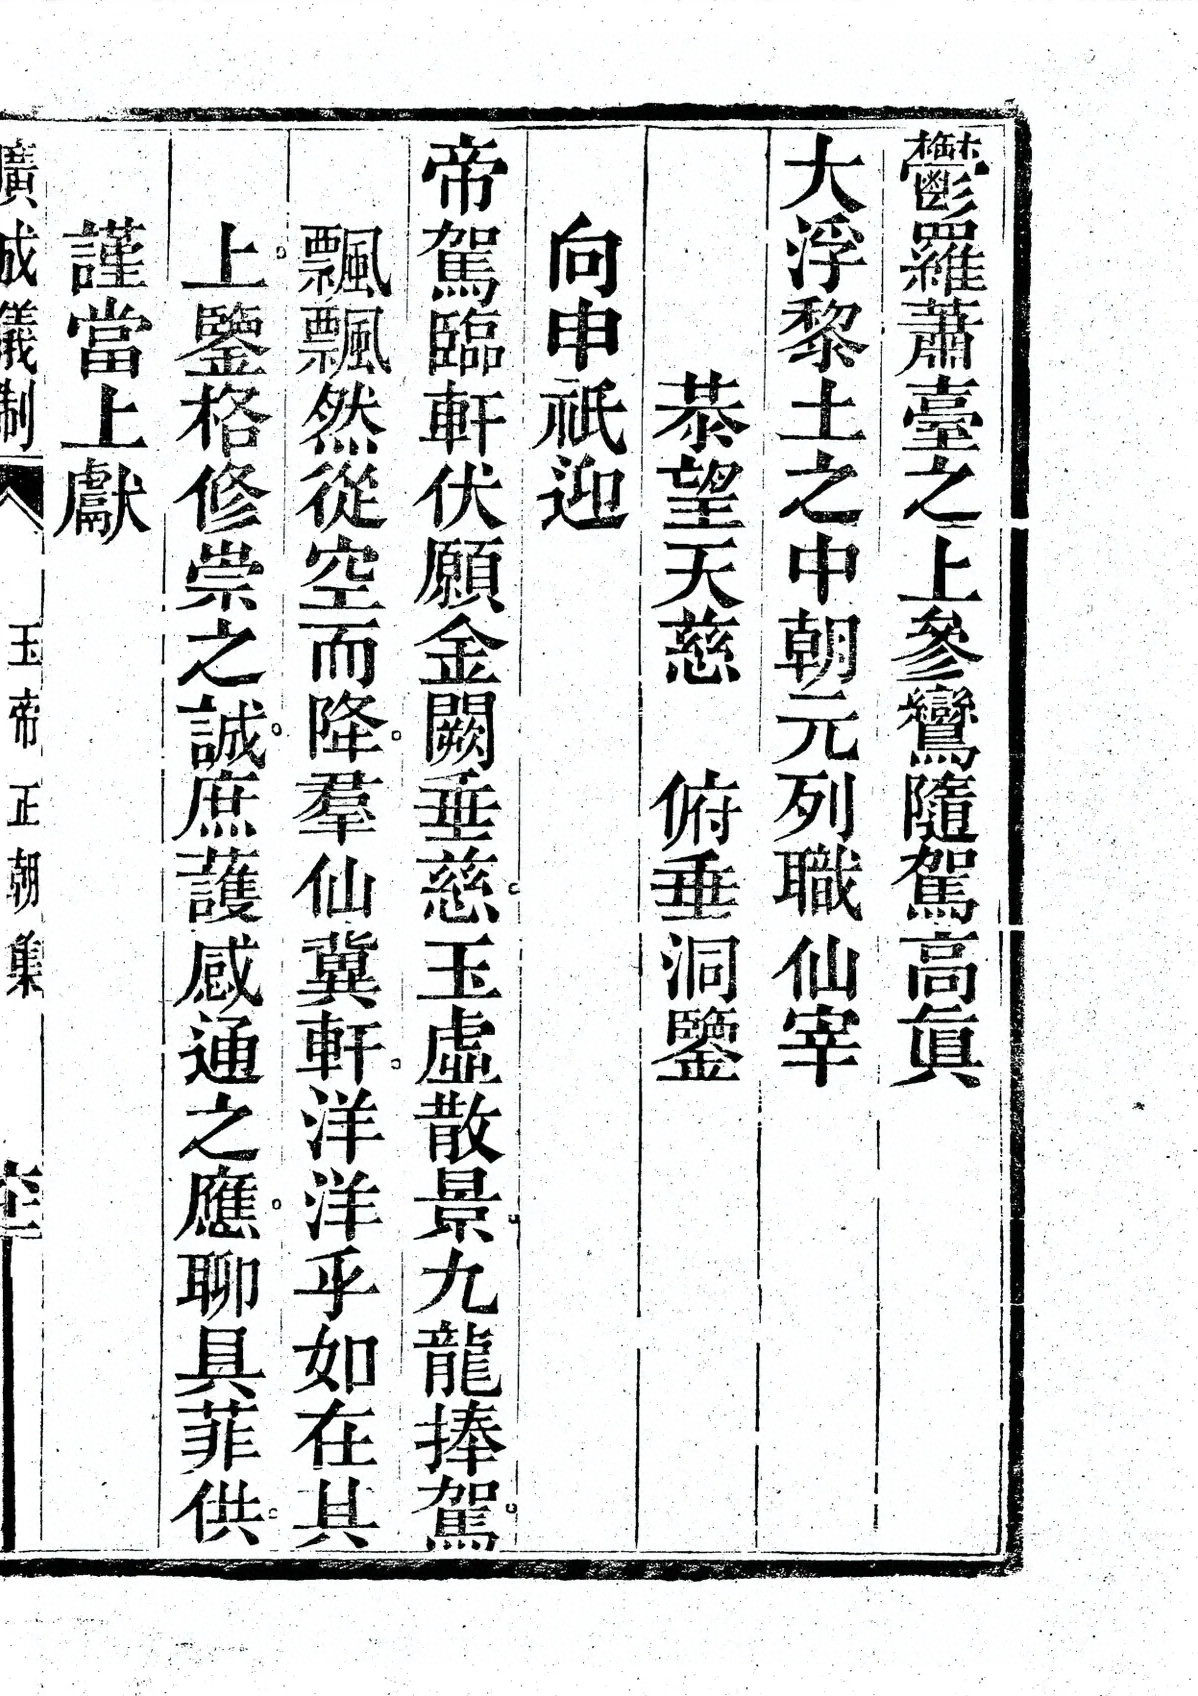 鬱羅蕭臺之上參鸞隨駕高眞
大浮黎土之中朝元列職仙宰
恭望天慈　俯垂洞鑒
向申祇迎
帝駕臨軒伏願金闕垂慈玉虛散景九龍捧駕
飄飄然從空而降羣仙冀軒洋洋乎如在其
上鑒格修崇之誠庶護感通之應聊具菲供
謹當上獻
廣成儀制　玉帝正朝集